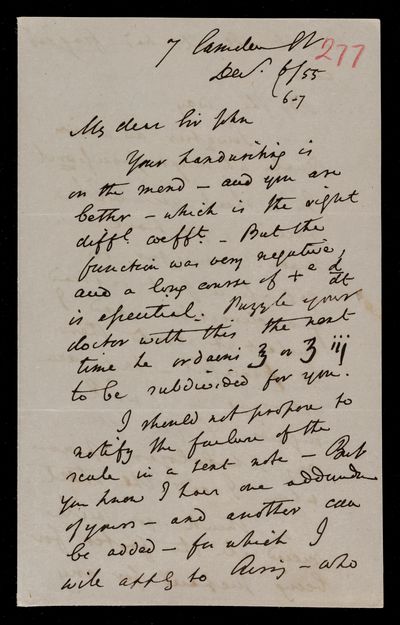 7 Camden St
277
Dec. 6/55
6-7
My dear Sir John
Your handwriting is
on the mend – and you are
better – which is the right
diffl. coefft. – But the
function was very negative,
and a long course of +e d/dt
is essential. Puzzle your
doctor with this the next
time he ordains ʒ or ℥ iij
to be subdivided for you.
I should not propose to
notify the failure of the
scale in a sent note – But
you know I have one addendum
of yours – and another can
be added – for which I
will apply to Airy – who